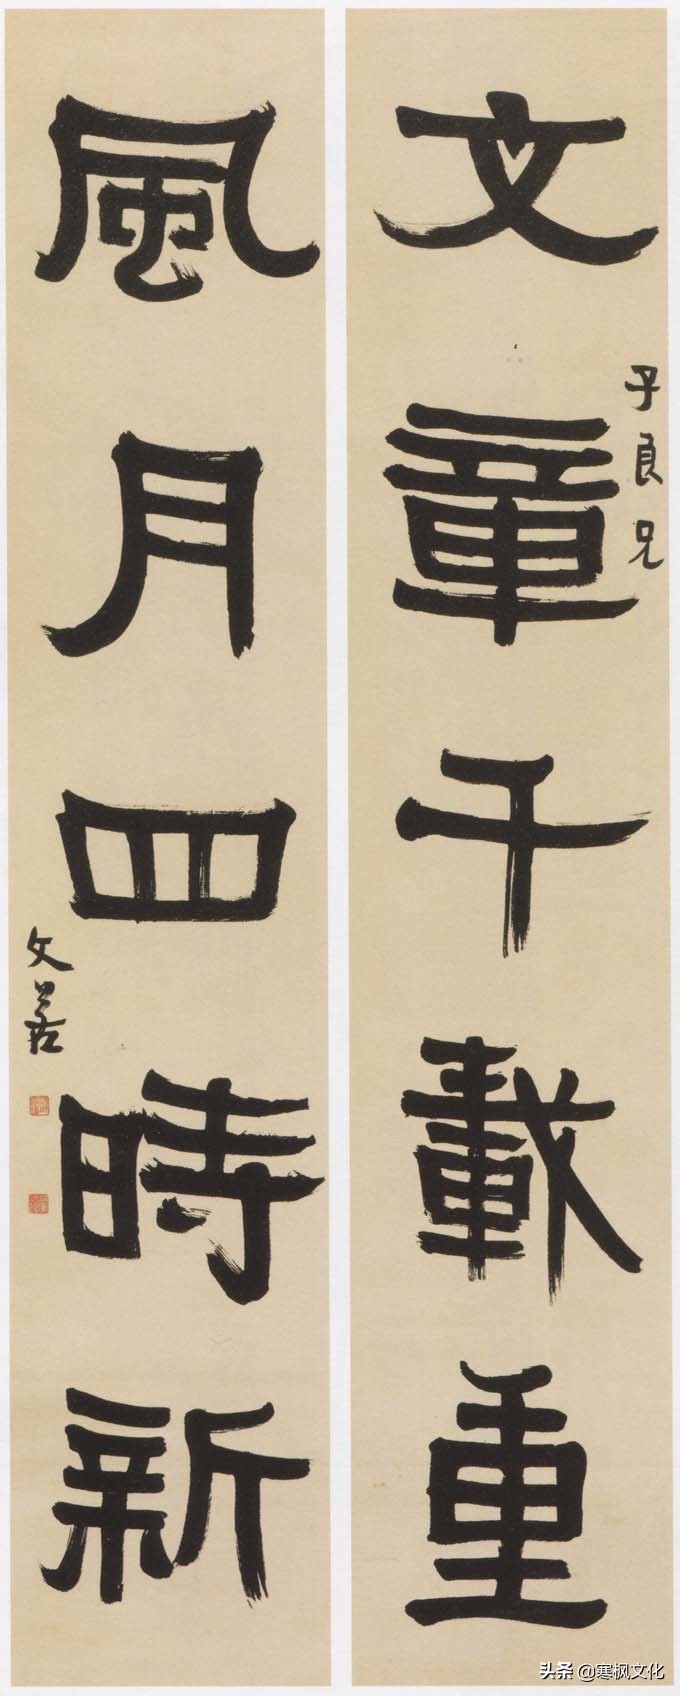 文章千載重
子良兄
風月四時新
文
头条 @寒枫文化